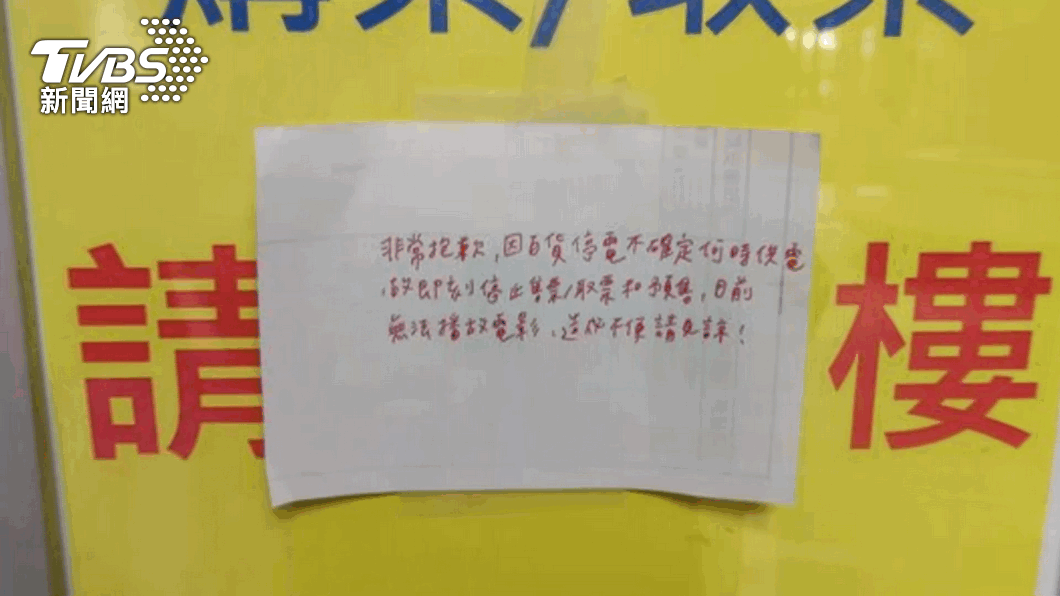 購票/取票
TVBS
新聞網
請
樓
非常抱歉,因百貨停電不確定何時供電
,故即刻停止售票/取票和預售,目前
無法播放電影,造成不便請見諒!